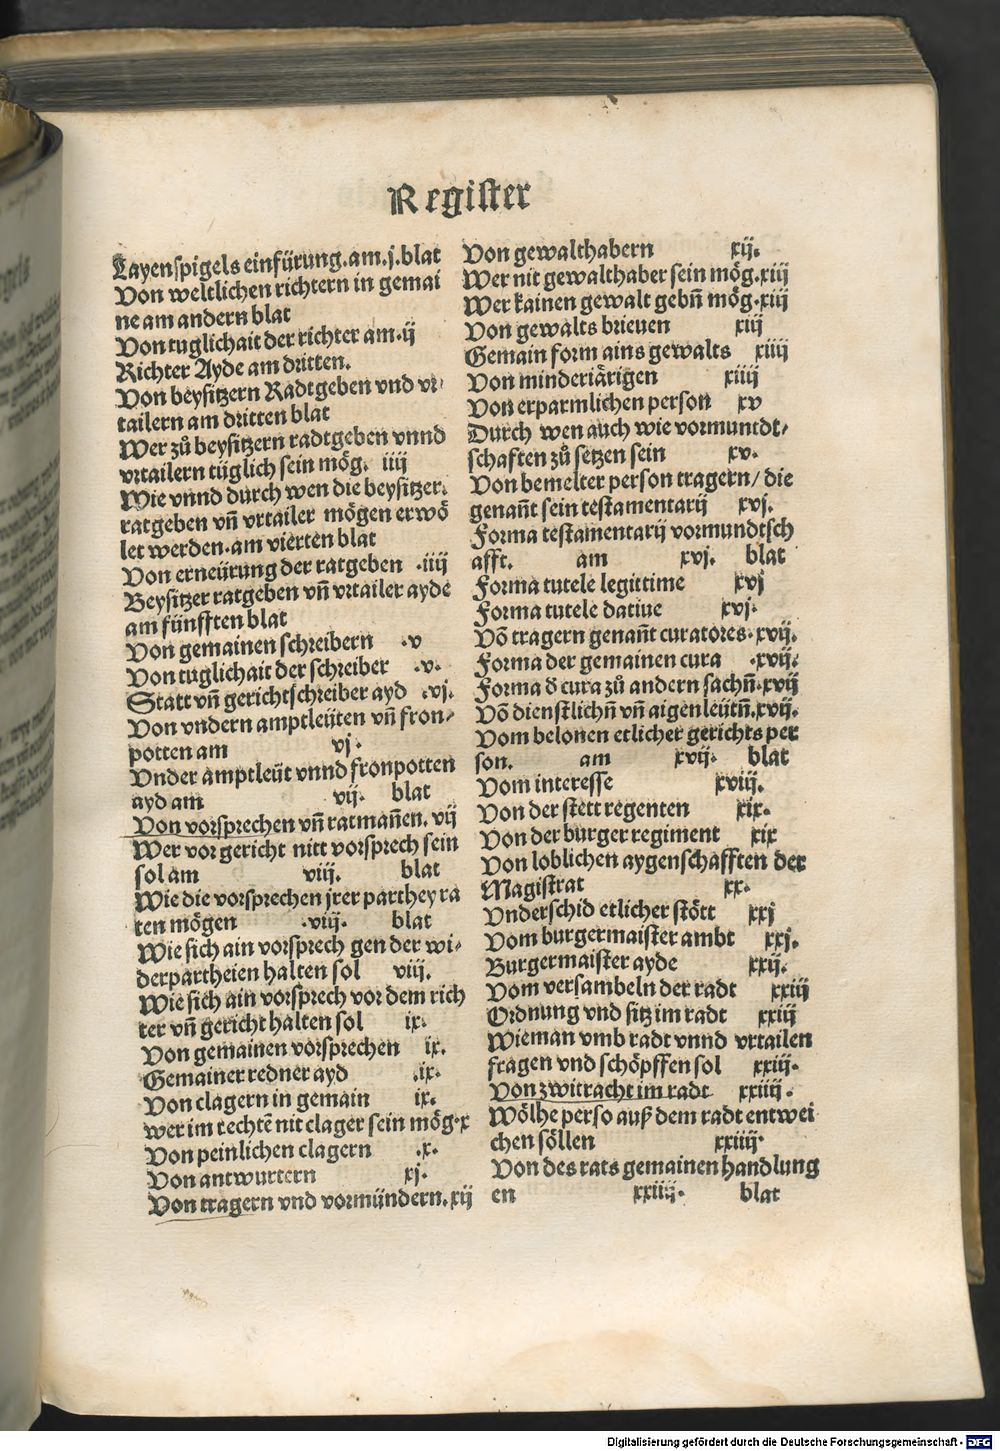 Register
Layenspigels einfürung.am.j.blat
Von weltlichen richtern in gemai
ne am andern blat
Von tuglichait der richter am.ij
Richter Ayde am dritten.
Von beysitzern Radtgeben vnd vr-
tailern am dritten blat
Wer zů beysitzern radtgeben vnnd
vrtailern tüglich sein mög. iiij
Wie vnnd durch wen die beysitzer.
ratgeben vñ vrtailer mögen erwö
let werden.am vierten blat
Von erneürung der ratgeben .iiij
Beysitzer ratgeben vñ vrtailer ayde
am fünfften blat
Von gemainen schreibern .v
Von tuglichait der schreiber .v.
Statt vñ gerichtschreiber ayd .vj.
Von vndern amptleüten vñ fron-
potten am vj.
Vnder amptleüt vnnd fronpotten
ayd am vij. blat
Von vorsprechen vñ ratmañen. vij
Wer vor gericht nitt vorsprech sein
sol am viij. blat
Wie die vorsprechen jrer parthey ra
ten mögen .viij. blat
Wie sich ain vorsprech gen der wi-
derpartheien halten sol viij.
Wie sich ain vorsprech vor dem rich
ter vñ gericht halten sol ix.
Von gemainen vorsprechen ix.
Gemainer redner ayd .ix.
Von clagern in gemain ix.
wer im rechtē nit clager sein mög.x
Von peinlichen clagern .x.
Von antwurtern xj.
Von tragern vnd vormündern.xij
Von gewalthabern xij.
Wer nit gewalthaber sein mög.xiij
Wer kainen gewalt gebñ mög.xiij
Von gewalts brieuen xiij
Gemain form ains gewalts xiiij
Von minderiärigen xiiij
Von erparmlichen person xv
Durch wen auch wie vormundt-
schaften zů setzen sein xv.
Von bemelter person tragern/ die
genañt sein testamentarij xvj.
Forma testamentarij vormundtsch
afft. am xvj. blat
Forma tutele legittime xvj
Forma tutele datiue xvj.
Võ tragern genañt curatores.xvij.
Forma der gemainen cura .xvij.
Forma d cura zů andern sachñ.xvij
Võ dienstlichñ vñ aigen leütñ.xvij.
Vom belonen etlicher gerichts per
son. am xvij. blat
Vom interesse xviij.
Von der stett regenten xix.
Von der burger regiment xix
Von loblichen aygenschafften der
Magistrat xx.
Vnderschid etlicher stött xxj
Vom burgermaister ambt xxj.
Burgermaister ayde xxij.
Vom versambeln der radt xxiij
Ordnung vnd sitz im radt xxiij
Wieman vmb radt vnnd vrtailen
fragen vnd schöpffen sol xxiij.
Von zwitracht im radt xxiiij.
Wölhe perso auß dem radt entwei
chen söllen xxiiij.
Von des rats gemainen handlung
en xxiiij. blat
Digitalisierung gefördert durch die Deutsche Forschungsgemeinschaft - DFG